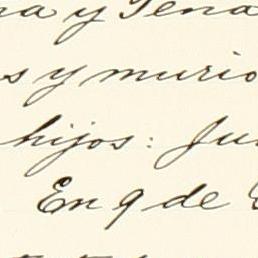 y Pena
s y murio
hijos: Ju
En 9 de